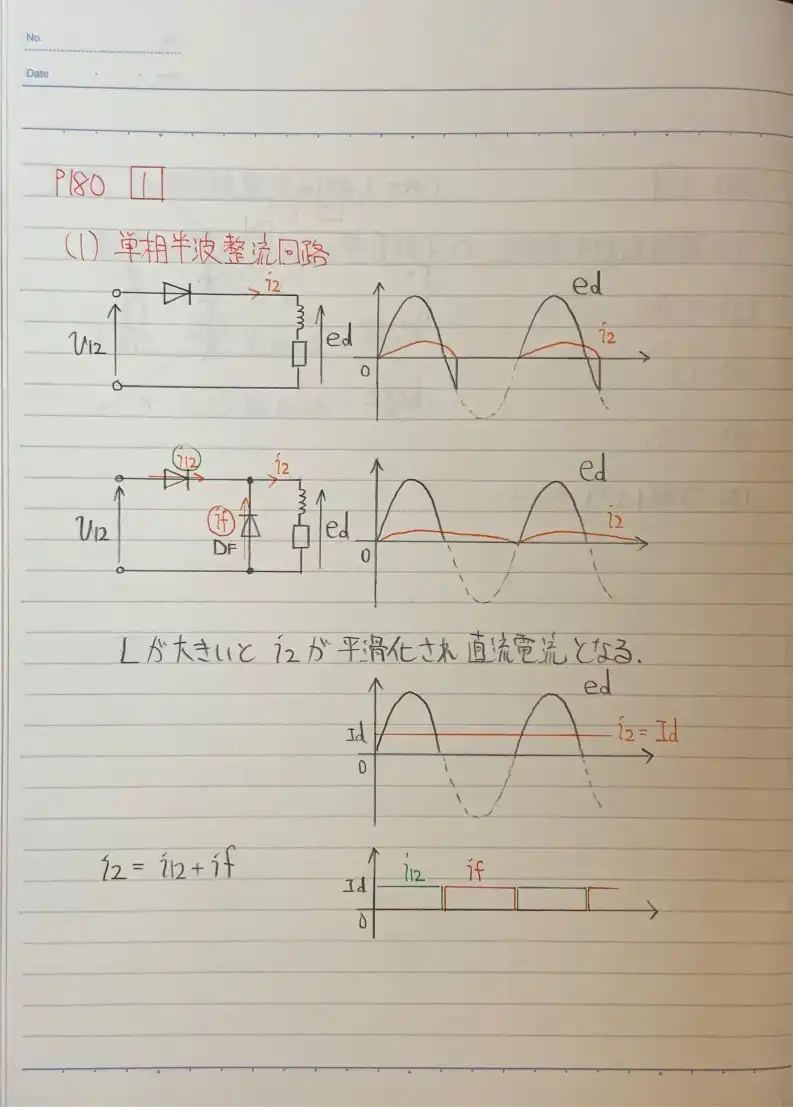 No.
Date
P180 1
(1) 単相半波整流回路
i2
V12
ed
ed
i2
0
i12
i2
V12
if
DF
ed
ed
i2
0
Lが大きいと i2が 平滑化され 直流電流となる.
ed
Id
i2 = Id
0
i2 = i12 + if
i12
if
Id
0